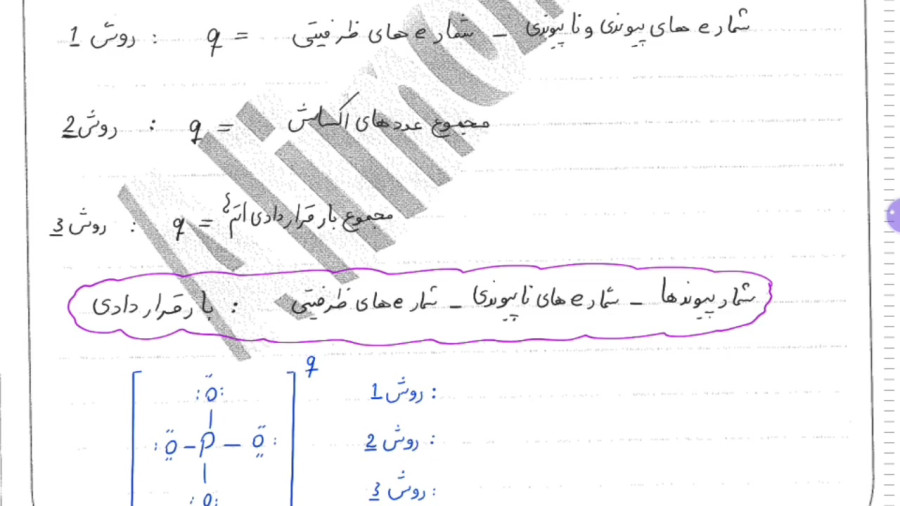 روش 1 : q = شمار e های ظرفیتی - شمار e های پیوندی و ناپیوندی
روش 2 : q = مجموع عددهای اکسایش
روش 3 : q = مجموع بار قراردادی اتم ها
بار قراردادی : شمار e های ظرفیتی - شمار e های ناپیوندی - شمار پیوندها
q
:Ö: روش 1 :
:Ö-P-Ö: روش 2 :
:O: روش 3 :